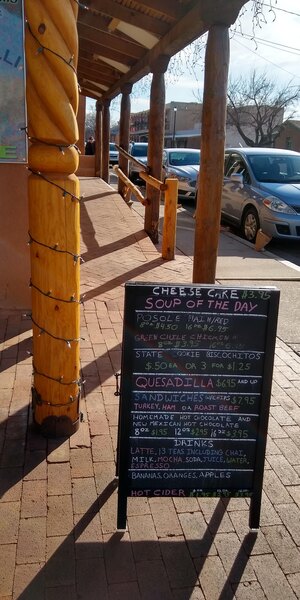 CHEESE CAKE $3.75
SOUP OF THE DAY
POSOLE
8oz $4.50 16oz $6.75
GREEN CHILE CHICKEN
8oz $3.95 16oz
STATE COOKIE BISCOCHITOS
$.50 EA OR 3 FOR $1.25
QUESADILLA $6.95 AND UP
SANDWICHES W/CHIPS $7.95
TURKEY, HAM OR ROAST BEEF
HOMEMADE HOT CHOCOLATE AND
NEW MEXICAN HOT CHOCOLATE
8oz $1.95 12oz $2.95 16oz $3.95
DRINKS
LATTE, 13 TEAS INCLUDING CHAI,
MILK, MOCHA SODA, JUICE, WATER,
ESPRESSO
BANANAS, ORANGES, APPLES
HOT CIDER